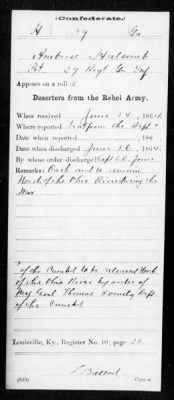 (Confederate.)
H 29 Ga
Ambrose Halcomb
Pvt 29 Regt Ga Inf
Appears on a roll of
Deserters from the Rebel Army.
When received June 19, 1864.
Where reported from the Dept
Date when reported , 186 .
Date when discharged June 26, 1864.
By whose order discharged Capt
Remarks: Oath and to remain
North of the Ohio River during the
War
of the Cumbld to be released North
of the Ohio River by order of
Maj Genl Thomas Comdg Dept
of the Cumbld
Louisville, Ky., Register No. 10; page 20
(639) Copyist.